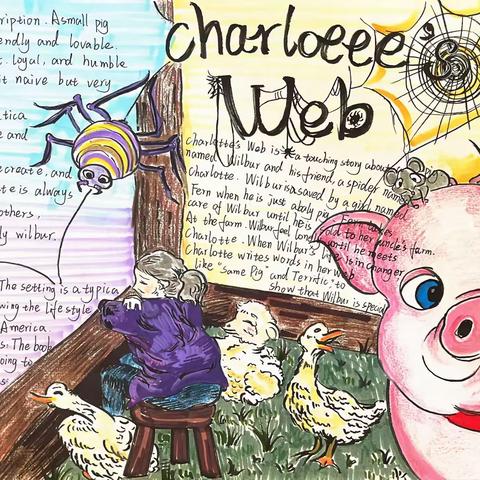 charloeee's
Web
ription. Asmall pig
endly and lovable.
t. loyal, and humble
it naive but very
tica
e and
create. and
te is always
others,
ly wilbur.
The setting is a typica
wing the life style
America
s. The book
oing to
s.
charlotte's Web is a touching story about
named Wilbur and his friend, a spider named
Charlotte. Wilbur is saved by a girl named
Fern when he is just abaly pig. Fern takes
care of Wilbur until he is sold to her uncle's farm.
At the farm. Wilbur feel lonely until he meets
Charlotte. When Wilbur's life is in danger
Charlotte writes words in her web
like "some Pig" and Terrific" to
show that Wilbur is special